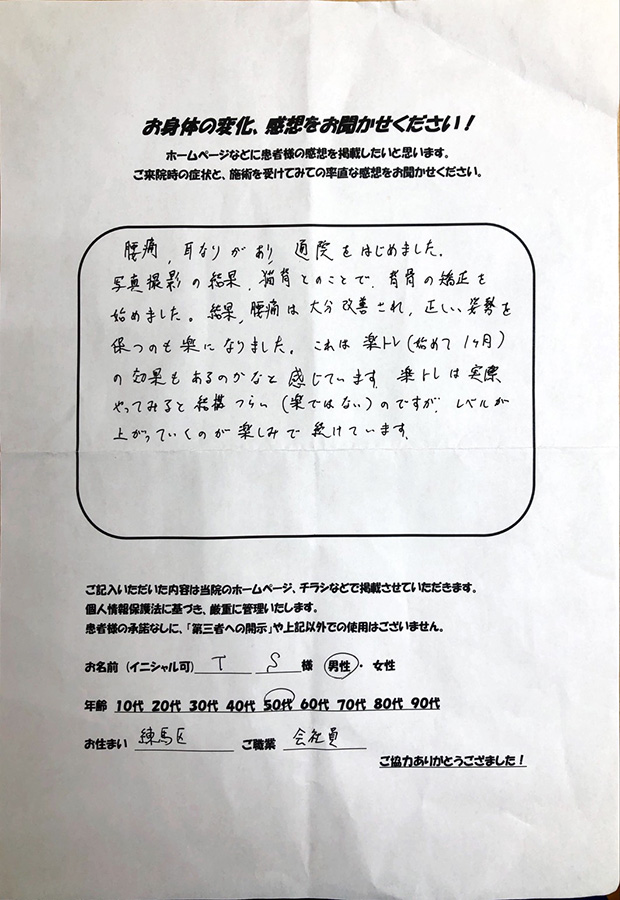 お身体の変化、感想をお聞かせください！
ホームページなどに患者様の感想を掲載したいと思います。
ご来院時の症状と、施術を受けてみての率直な感想をお聞かせください。
腰痛、耳なりがあり、通院をはじめました。
写真撮影の結果、猫背とのことで、背骨の矯正を
始めました。結果、腰痛は大分改善され、正しい姿勢を
保つのも楽になりました。これは楽トレ(始めて1ヶ月)
の効果もあるのかなと感じています。楽トレは実際
やってみると結構つらい(楽ではない)のですが、レベルが
上がっていくのが楽しみで続けています。
ご記入いただいた内容は当院のホームページ、チラシなどで掲載させていただきます。
個人情報保護法に基づき、厳重に管理いたします。
患者様の承諾なしに、「第三者への開示」や上記以外での使用はございません。
お名前（イニシャル可） T S 様 男性・女性
年齢 10代 20代 30代 40代 50代 60代 70代 80代 90代
お住まい 練馬区 ご職業 会社員
ご協力ありがとうございました！